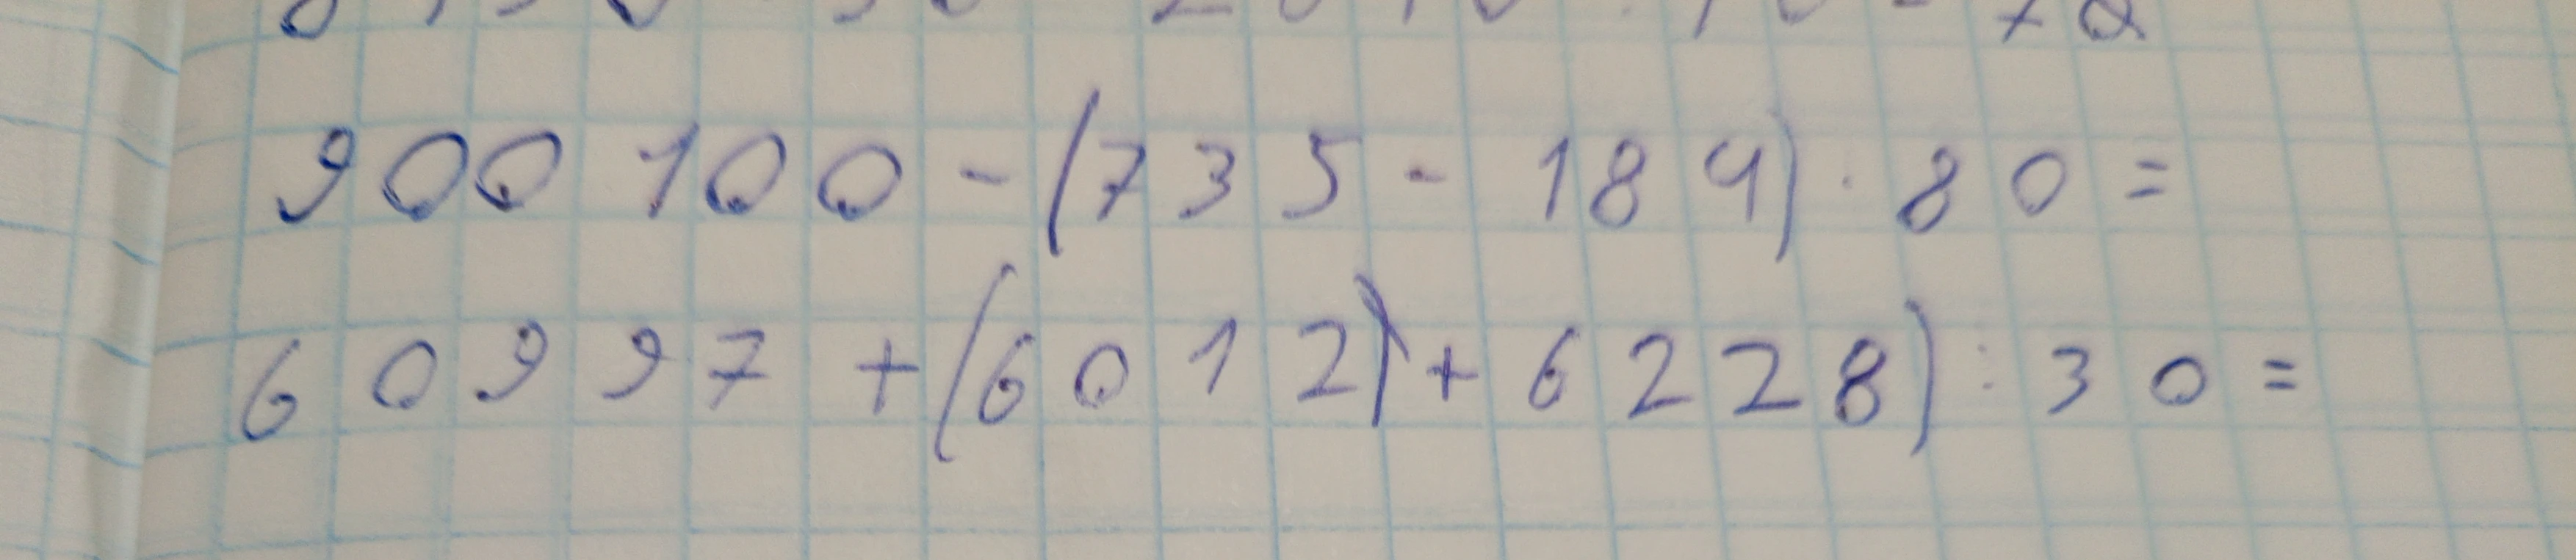 900 100 - (735 - 184) · 80 =
60997 + (6012) + 6228) : 30 =